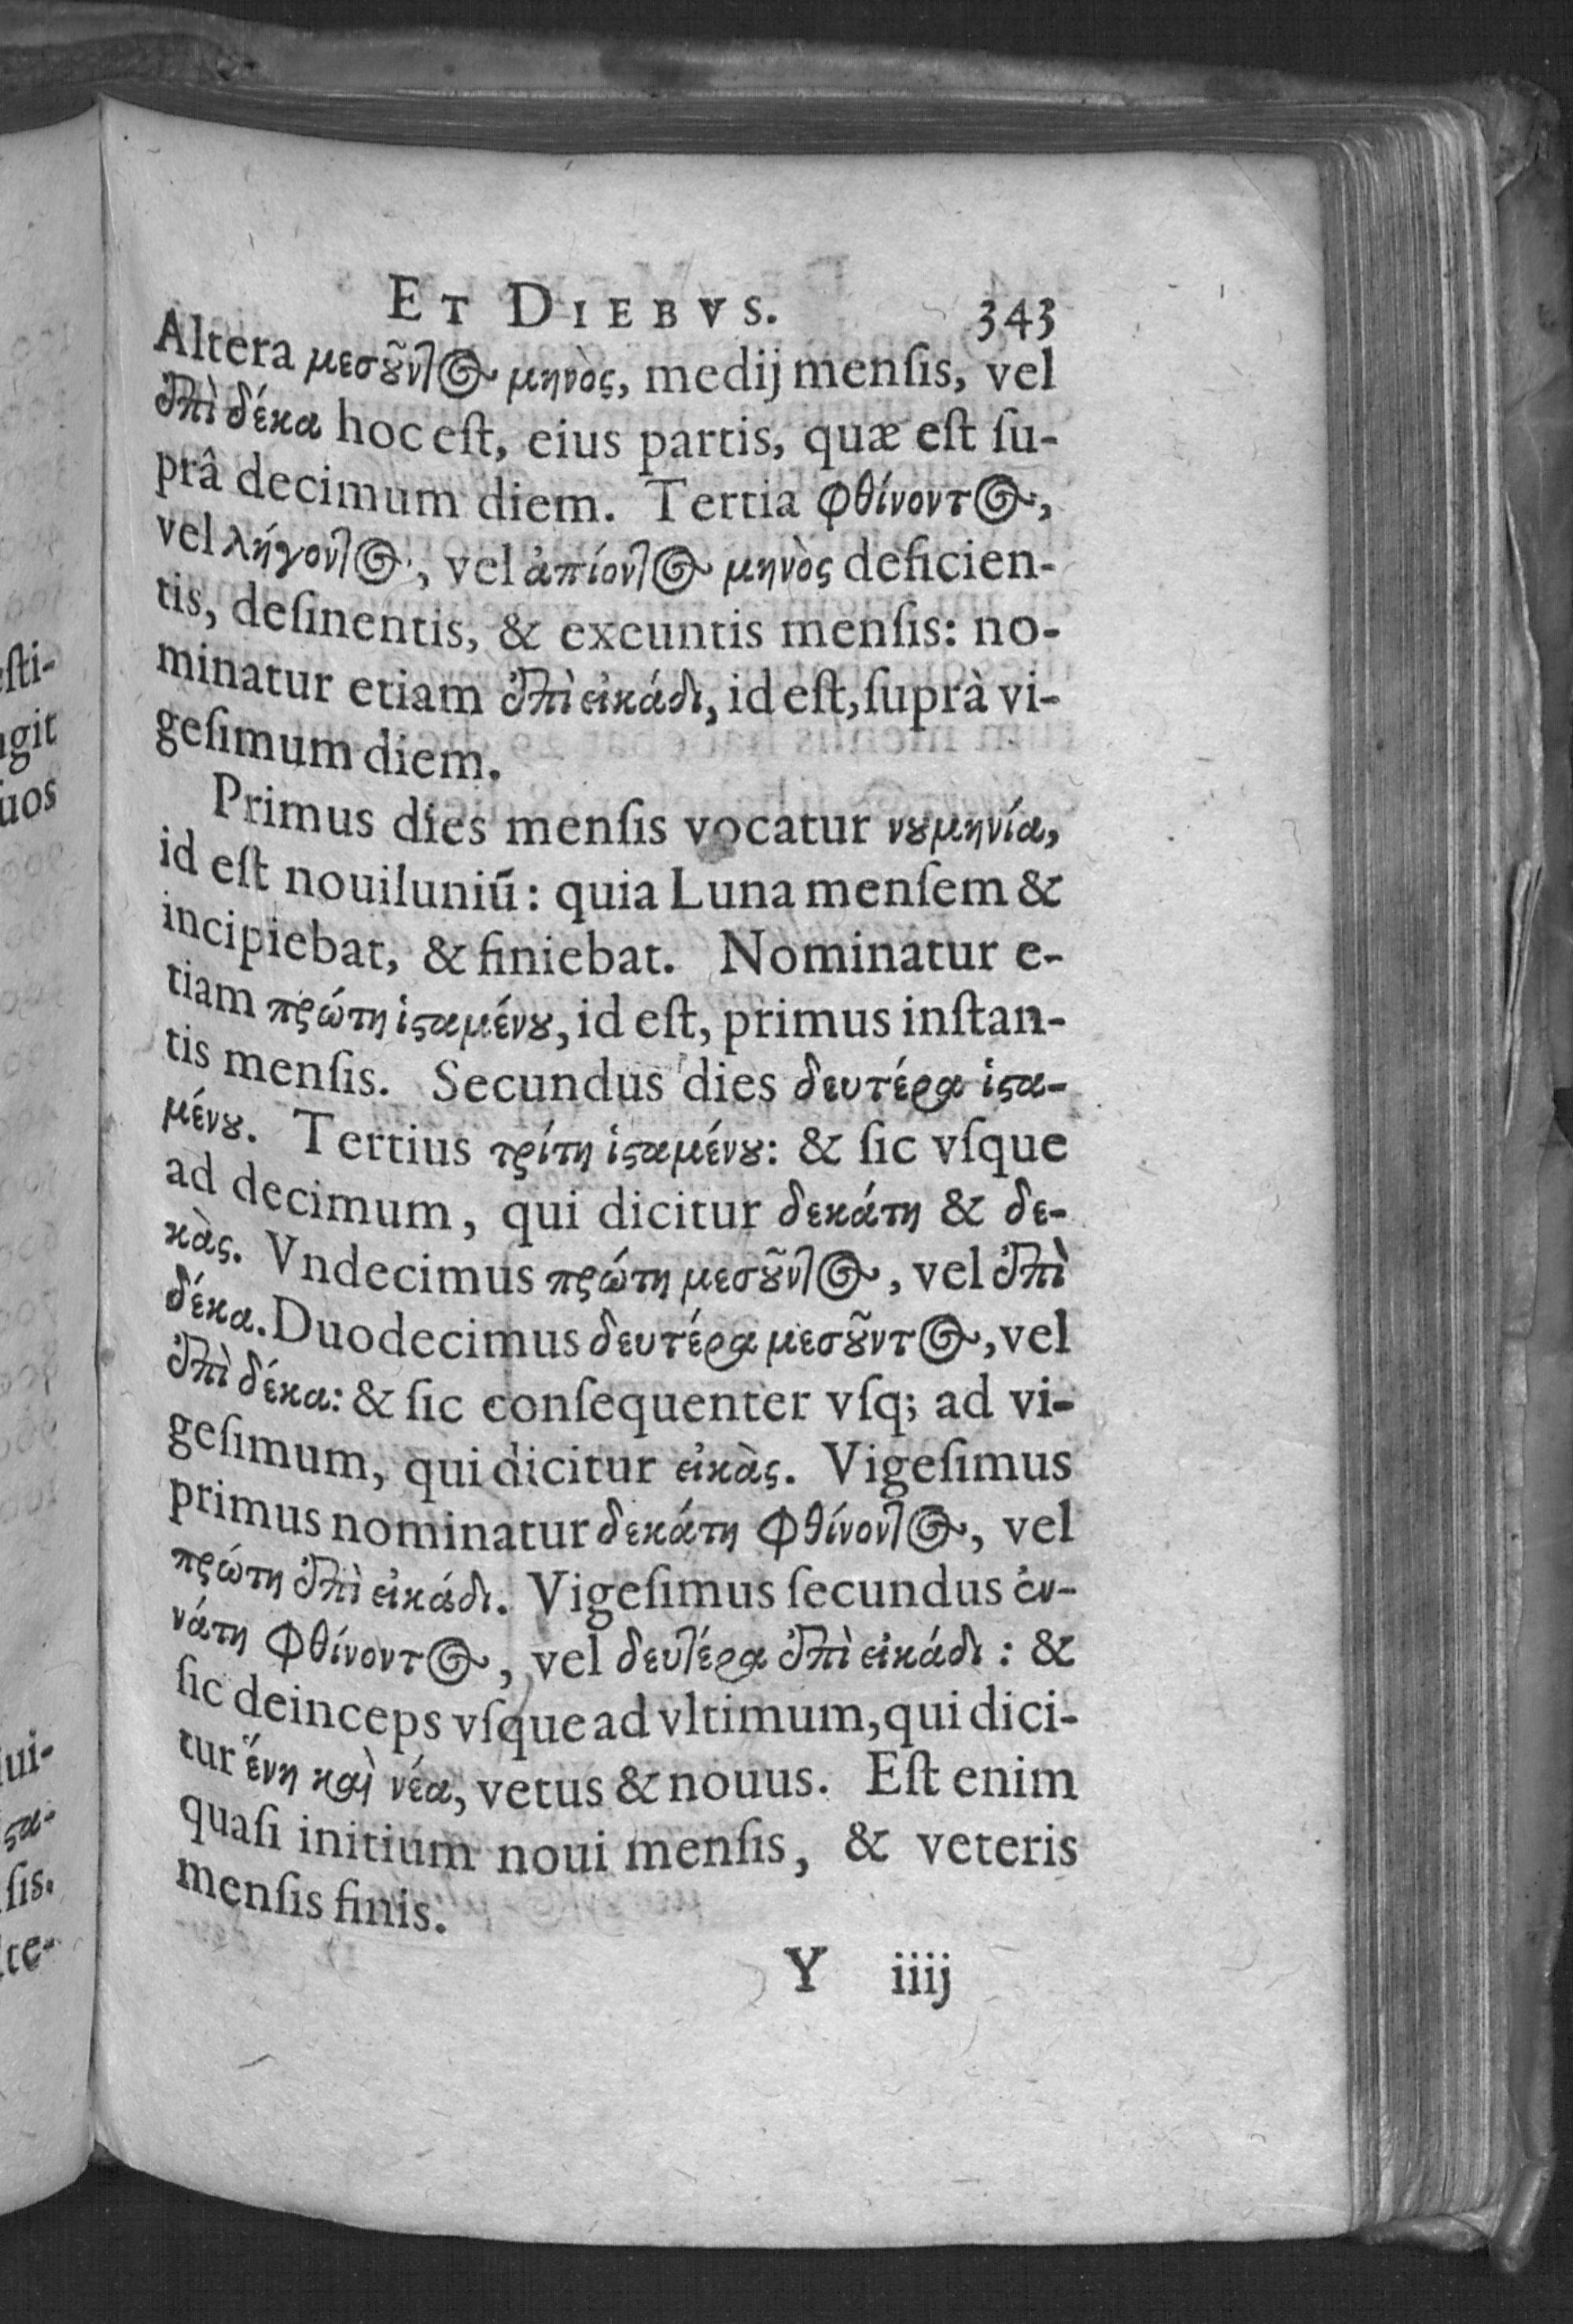 ET DIEBVS. 343
Altera μεσοῦντος μηνὸς, medij menſis, vel
ἐπὶ δέκα hoc eſt, eius partis, quæ eſt ſu-
prâ decimum diem. Tertia φθίνοντος,
vel λήγοντος, vel ἀπίοντος μηνὸς deficien-
tis, deſinentis, & exeuntis menſis: no-
minatur etiam ἐπὶ εἰκάδι, id eſt, ſuprà vi-
geſimum diem.
Primus dies menſis vocatur νουμηνία,
id eſt nouiluniū: quia Luna menſem &
incipiebat, & finiebat. Nominatur e-
tiam πρώτη ἱσταμένου, id eſt, primus inſtan-
tis menſis. Secundus dies δευτέρα ἱστα-
μένου. Tertius τρίτη ἱσταμένου: & ſic vſque
ad decimum, qui dicitur δεκάτη & δε-
κὰς. Vndecimus πρώτη μεσοῦντος, vel ἐπὶ
δέκα. Duodecimus δευτέρα μεσοῦντος, vel
ἐπὶ δέκα: & ſic conſequenter vſq; ad vi-
geſimum, qui dicitur εἰκὰς. Vigeſimus
primus nominatur δεκάτη φθίνοντος, vel
πρώτη ἐπὶ εἰκάδι. Vigeſimus ſecundus ἐν-
νάτη φθίνοντος, vel δευτέρα ἐπὶ εἰκάδι: &
ſic deinceps vſque ad vltimum, qui dici-
tur ἕνη καὶ νέα, vetus & nouus. Eſt enim
quaſi initium noui menſis, & veteris
menſis finis.
Y iiij